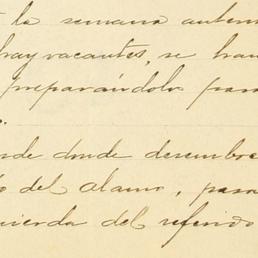 la semana anter
hay vacantes, se han
preparándolo para
de donde desembo
del alamo, pasa
quierda del referido